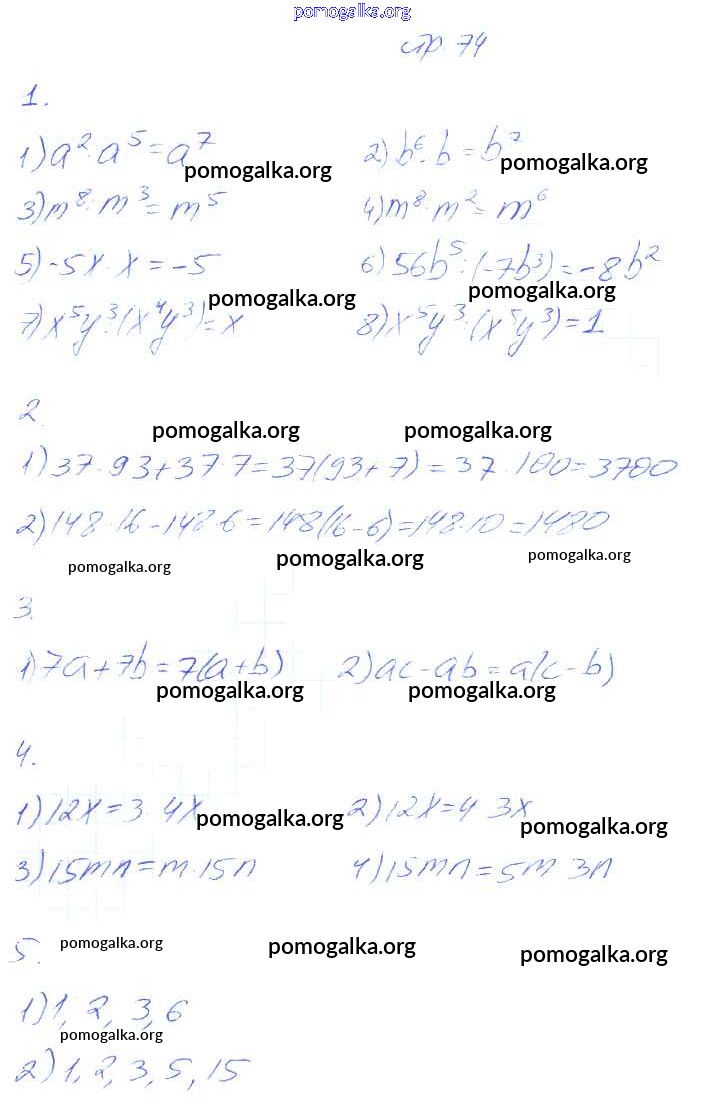 pomogalka.org
стр. 74
1.
1) a²·a⁵=a⁷ 2) b⁶·b=b⁷
pomogalka.org pomogalka.org
3) m⁸:m³=m⁵ 4) m⁸:m²=m⁶
5) -5x:x=-5 6) 56b⁵:(-7b³)=-8b²
pomogalka.org pomogalka.org
7) x⁵y³:(x⁴y³)=x 8) x⁵y³:(x⁵y³)=1
2.
pomogalka.org pomogalka.org
1) 37·93+37·7=37(93+7)=37·100=3700
2) 148·16-148·6=148(16-6)=148·10=1480
pomogalka.org pomogalka.org pomogalka.org
3.
1) 7a+7b=7(a+b) 2) ac-ab=a(c-b)
pomogalka.org pomogalka.org
4.
1) 12x=3·4x 2) 12x=4·3x
pomogalka.org pomogalka.org
3) 15mn=m·15n 4) 15mn=5m·3n
5. pomogalka.org pomogalka.org pomogalka.org
1) 1, 2, 3, 6
pomogalka.org
2) 1, 2, 3, 5, 15